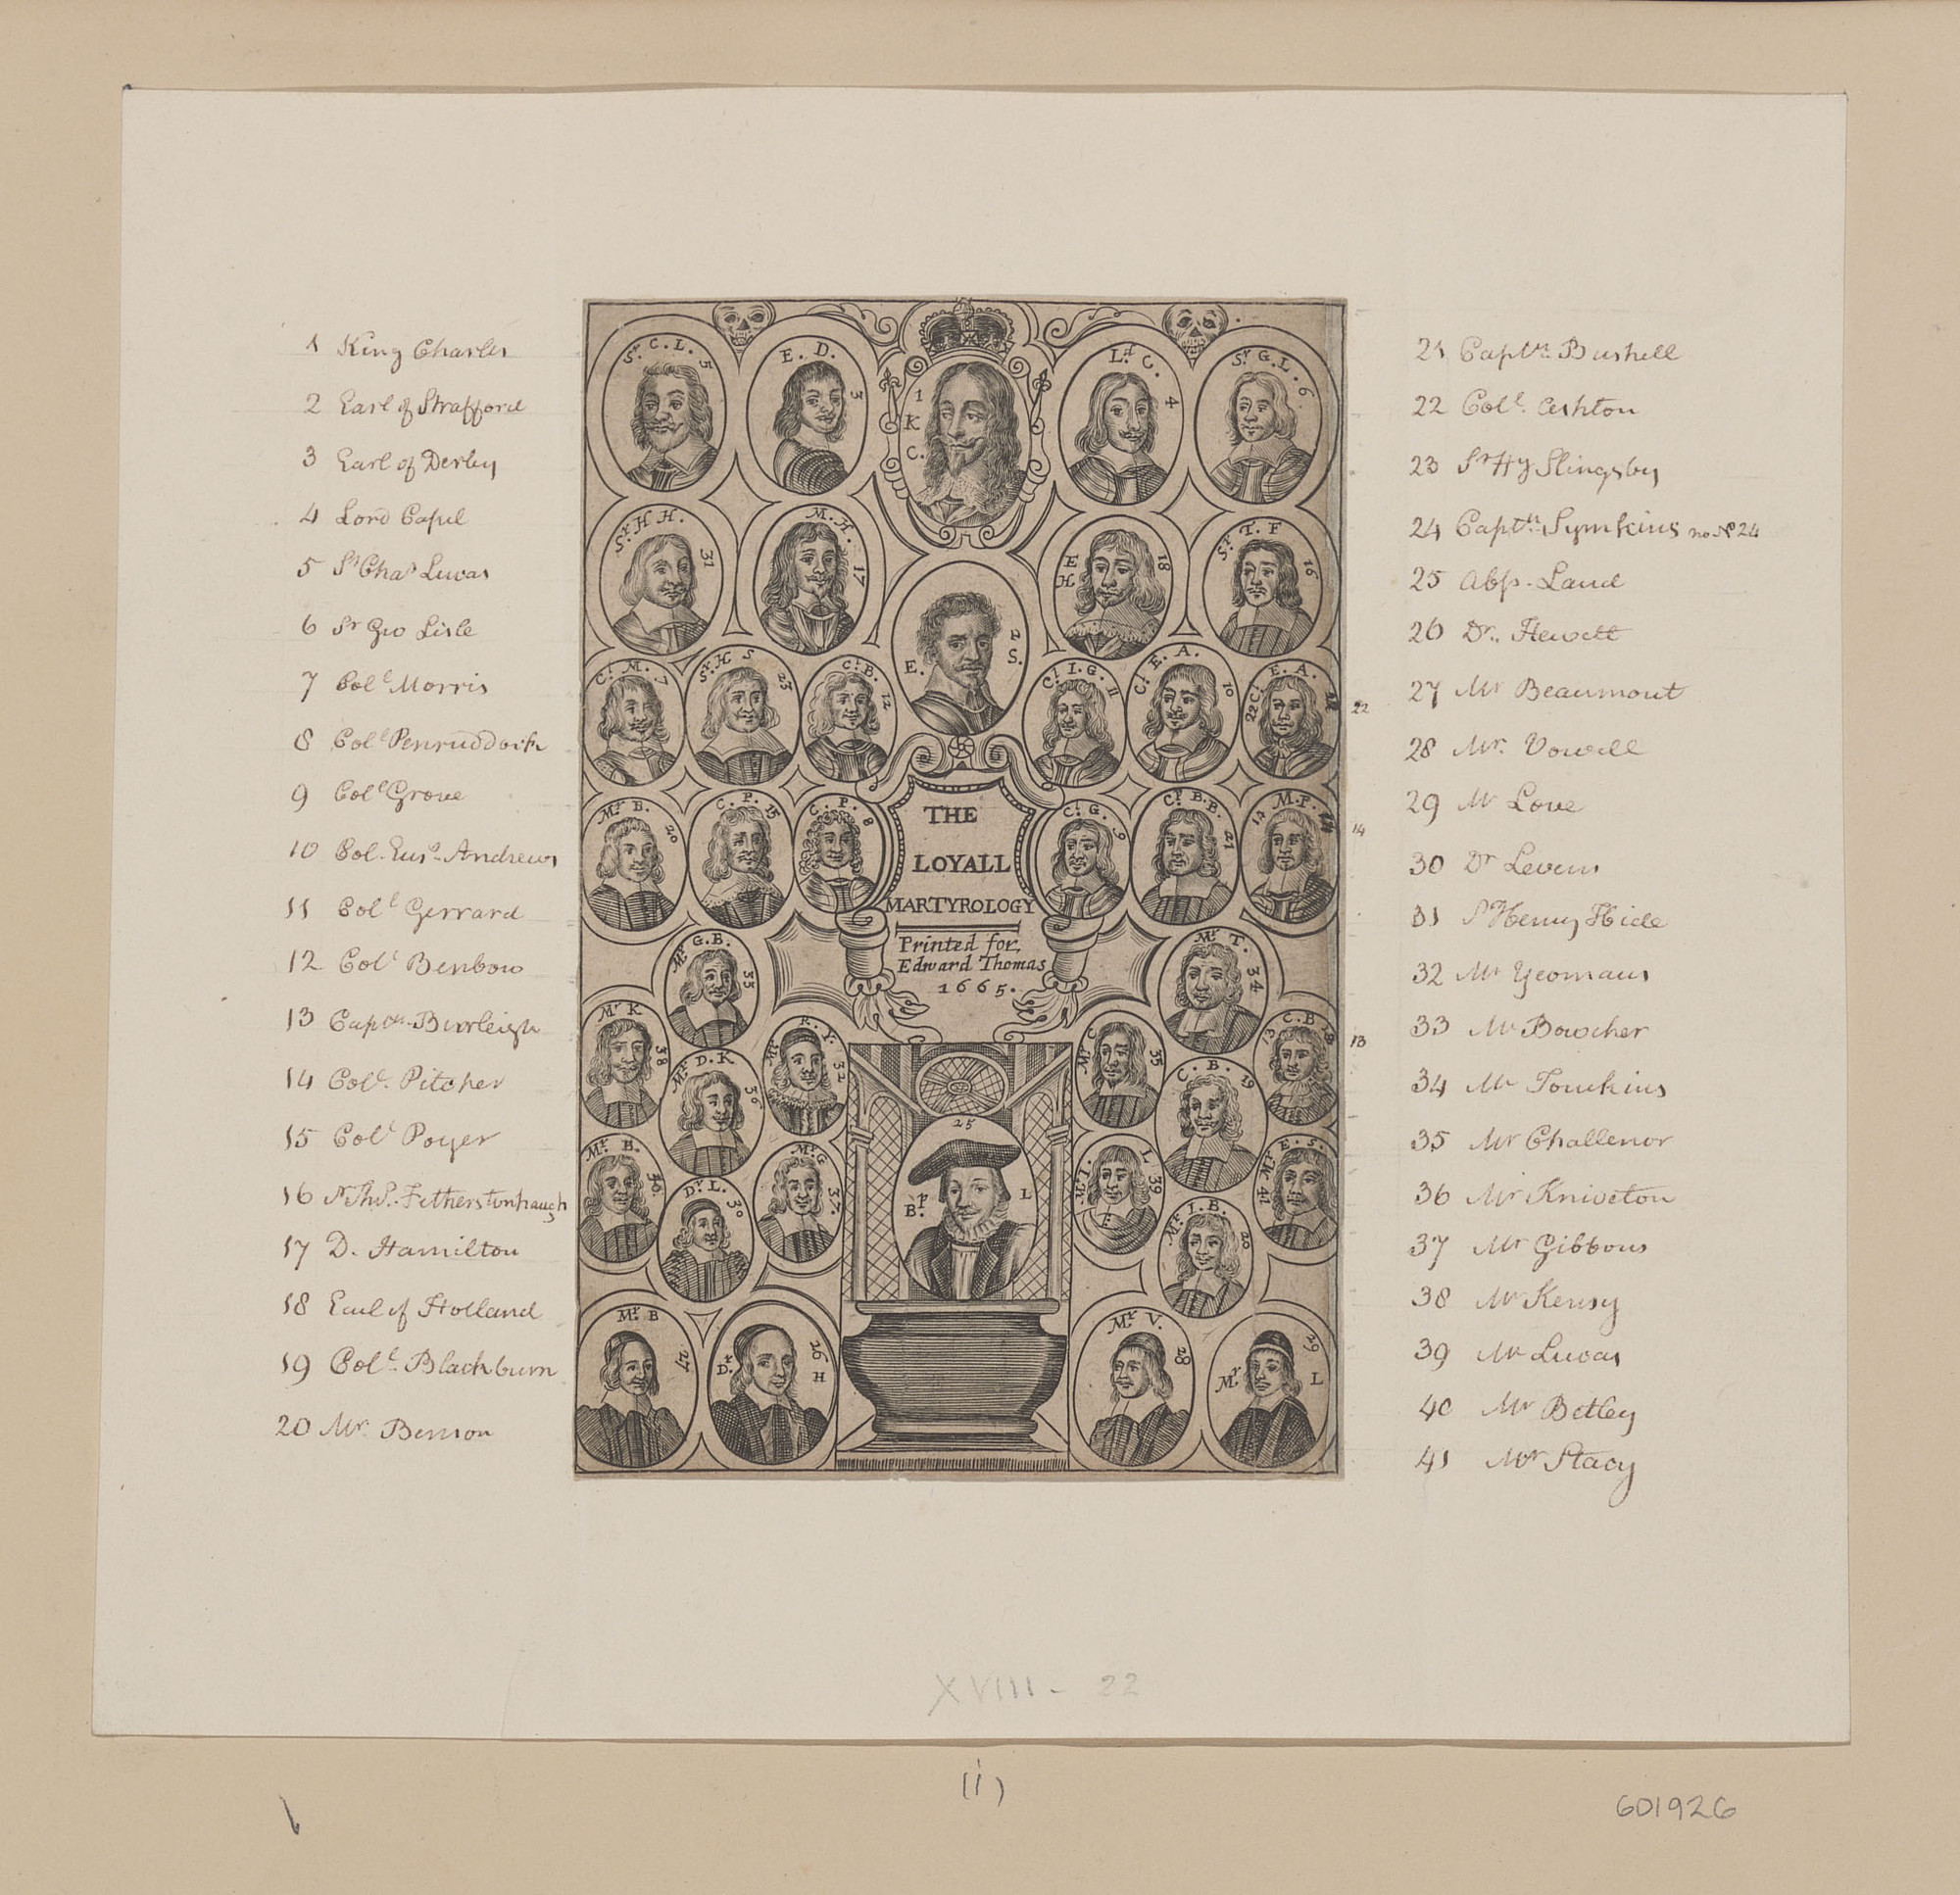 1 King Charles
2 Earl of Strafford
3 Earl of Derby
4 Lord Capel
5 Sr Chas Lucas
6 Sr Geo Lisle
7 Coll Morris
8 Coll Penruddock
9 Coll Grove
10 Col. Euse Andrews
11 Coll Gerrard
12 Coll Benbow
13 Captn. Burleigh
14 Coll. Pitcher
15 Coll Poyer
16 Sr Ths. Fetherstonhaugh
17 D. Hamilton
18 Earl of Holland
19 Coll. Blackburn
20 Mr. Benson
Sr. C. L. 5
E. D. 3
1 K. C.
Ld. C. 4
Sr. G. L. 6
Sr. H H. 31
M. H. 17
E H 18
Sr. T. F 16
E. S. 2
Cl. M. 7
Sr. H S 23
Cl. B. 12
Cl. I. G. 11
Cl. E. A. 10
22 Cl. E. A. 22
Mr. B. 20
C. P. 15
C. P. 8
Cl. G. 9
Cp. B. B. 21
14 M. P. 14
THE
LOYALL
MARTYROLOGY
Printed for
Edward Thomas
1665.
Mr. G. B. 33
Mr. T. 34
Mr. K 38
Mr. D. K 36
Mr. R. Y. 32
Mr. C 35
C. B. 19
13 C. B 13
Mr. B. 40
Dr. L. 30
Mr. G 37
25
Bp. L
Mr. T. L 39
Mr. I. B. 20
Mr. E. S. 41
Mr. B 27
Dr. H 26
Mr. V. 28
Mr. L 29
21 Captn. Bushell
22 Coll. Ashton
23 Sr Hy Slingsby
24 Captn. Symkins no No 24
25 Abp. Laud
26 Dr. Hewett
27 Mr Beaumont
28 Mr. Vowell
29 Mr Love
30 Dr Levens
31 Sr Henry Hide
32 Mr Yeomans
33 Mr Bowcher
34 Mr Tomkins
35 Mr Challenor
36 Mr Kniveton
37 Mr Gibbons
38 Mr Kensy
39 Mr Lucas
40 Mr Betley
41 Mr Stacy
22
14
13
XVIII - 22
(i)
601926